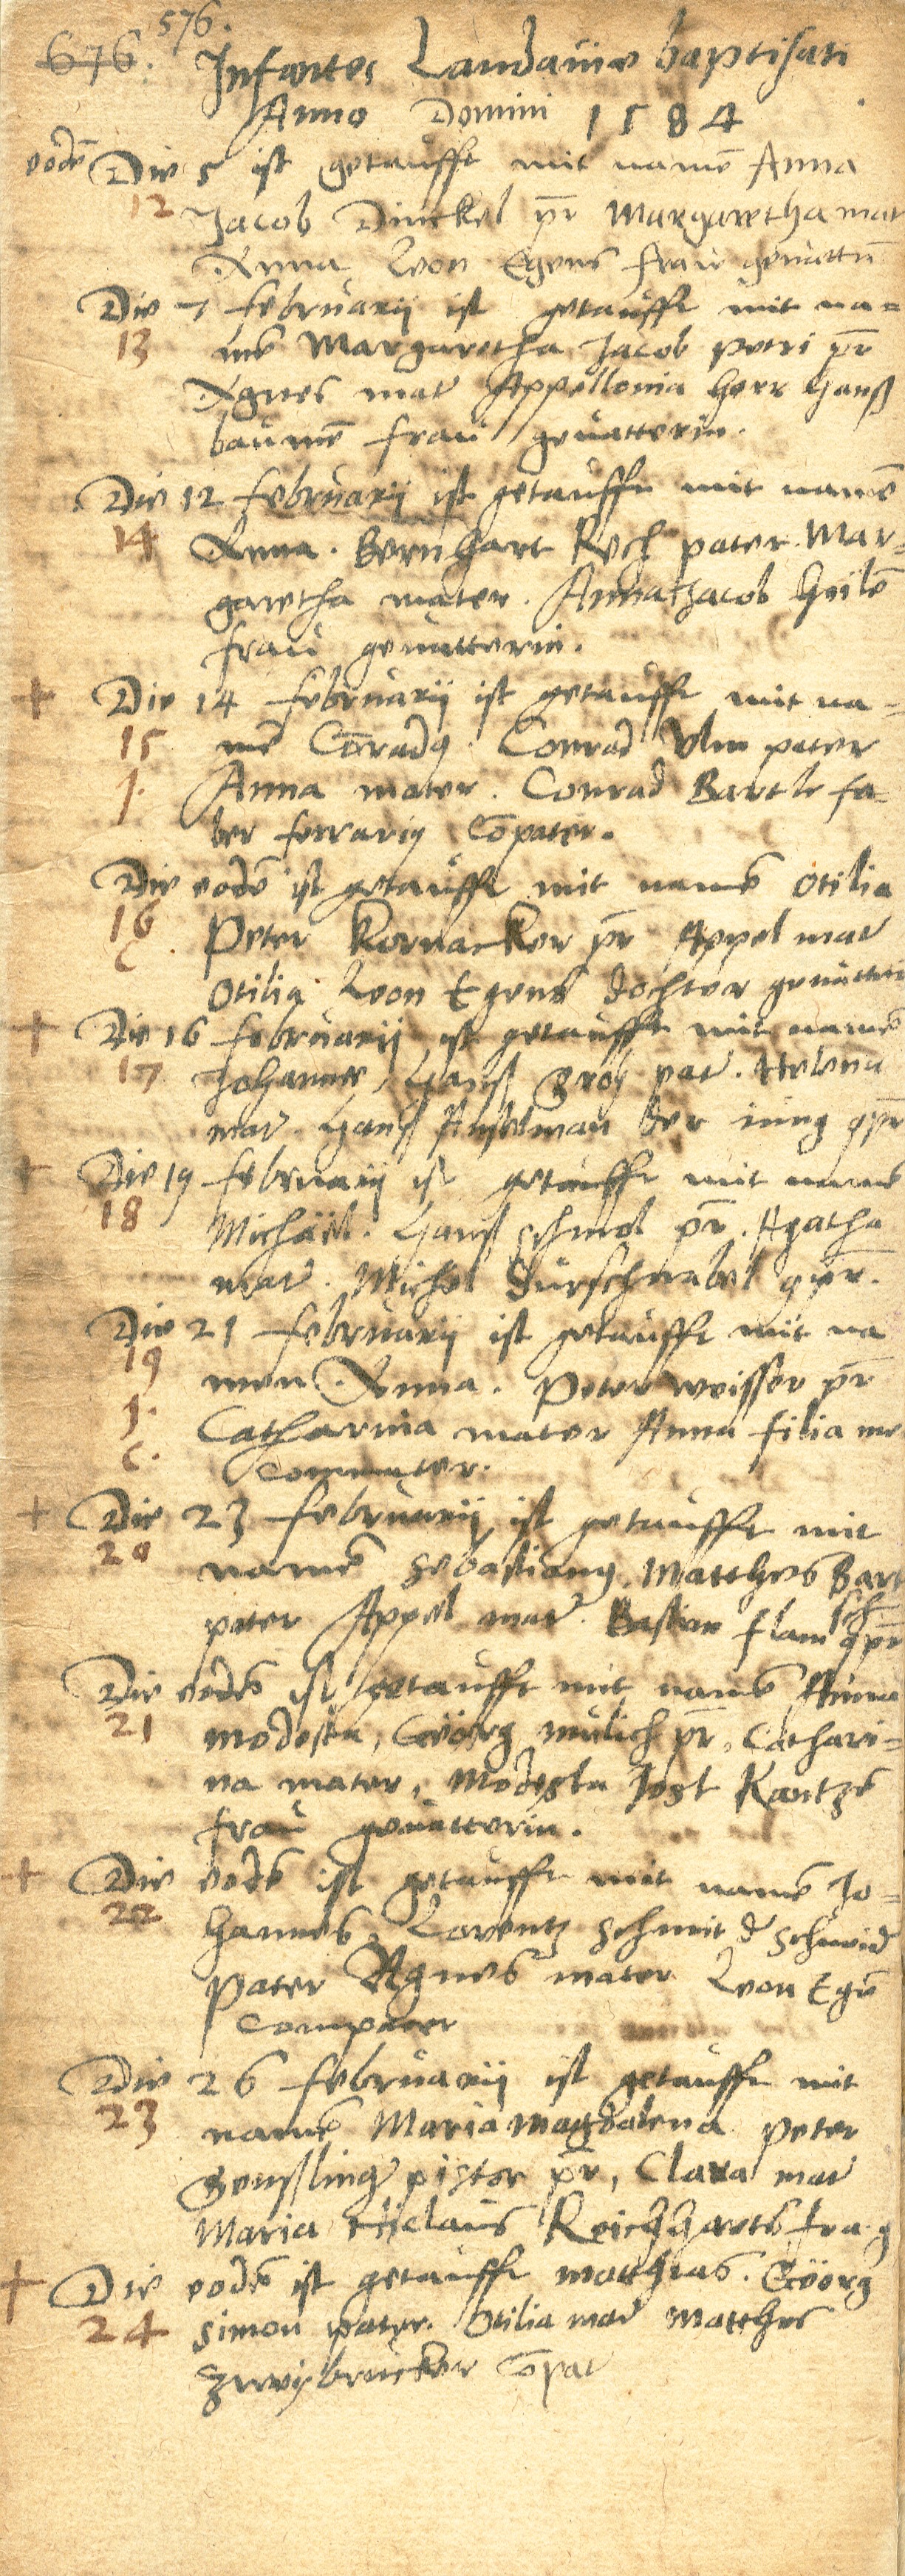 676. 576.
Infantes Landauiæ baptisati
Anno Domini 1584
eodē Die 5 ist getaufft mit namē Anna
12 Jacob Dinckel pr̄ Margaretha mat
Anna Leon Egens frau geuattn̄
Die 7 februarij ist getaufft mit na=
13 mē Margaretha Jacob petri pr̄
Agnes mat Appellonia herr Hanß
baumē frau geuatterin.
Die 12 februarij ist getaufft mit namē
14 Anna. Bernhart Koch pater. Mar=
garetha mater. Anna Jacob Heilē
frau geuatterin.
+ Die 14 februarij ist getaufft mit na=
15 mē Cōradꝰ. Conrad Ulm pater
j. Anna mater. Conrad Bartle fa=
ber ferrarij Cōpater.
Die eodē ist getaufft mit namē Otilia
16 Peter Kornacker pr̄ Appel mat
C. Otilia Leon Egens dochter geuatterin
+ Die 16 februarij ist getaufft mit namē
17 Johannes, Hanß groß pat. Helena
mat. Hanß Anselman der iung gpr̄
+ Die 19 februarij ist getaufft mit namē
18 Michäel. Hanß schmol pr̄. Agatha
mat. Michel dürschnabel gpr̄.
Die 21 februarij ist getaufft mit na
19 men Anna. Peter weisser pr̄
j. Catharina mater Anna filia me
C. commater.
+ Die 23 februarij ist getaufft mit
20 namē Sebastianꝰ. Matthes Bart
pater Appel mat. Bastian flam sch gpr̄
Die eodē ist getaufft mit namē Anna
21 modesta, Geörg mülich pr̄, Cathari=
na mater, Modesta Jost Kantzē
frau geuatterin.
+ Die eodē ist getaufft mit namē Jo=
22 hannes, Lorentz schmit d schneid
Pater Agnes mater Leon Egē
compater
Die 26 februarij ist getaufft mit
23 namē Maria magdalena Peter
Genßling pistor pr̄, Clara mat
Maria Niclaus Reichharts fra. g
+ Die eodē ist getaufft matthias. Geörg
24 simon pater. Otilia mat Matthes
Zweybrücker cōpat